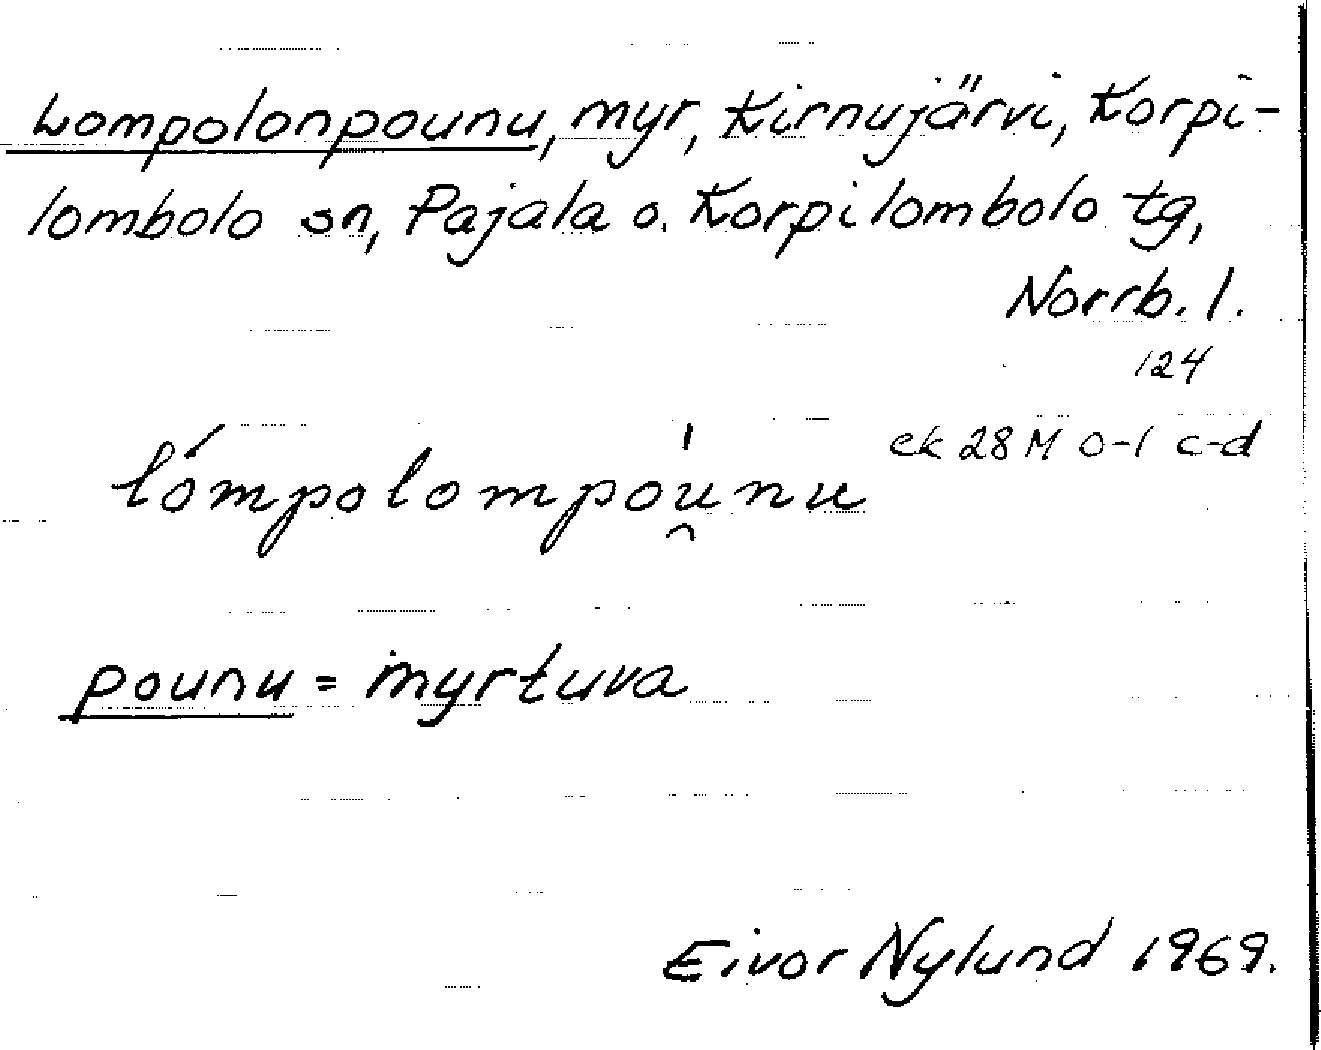 Lompolonpounu, myr, Kirnujärvi, Korpi-
lombolo sn, Pajala o. Korpilombolo tg,
Norrb. l.
124
ek 28 M 0-1 c-d
lómpolompo̍u̯nu
pounu = myrtuva
Eivor Nylund 1969.